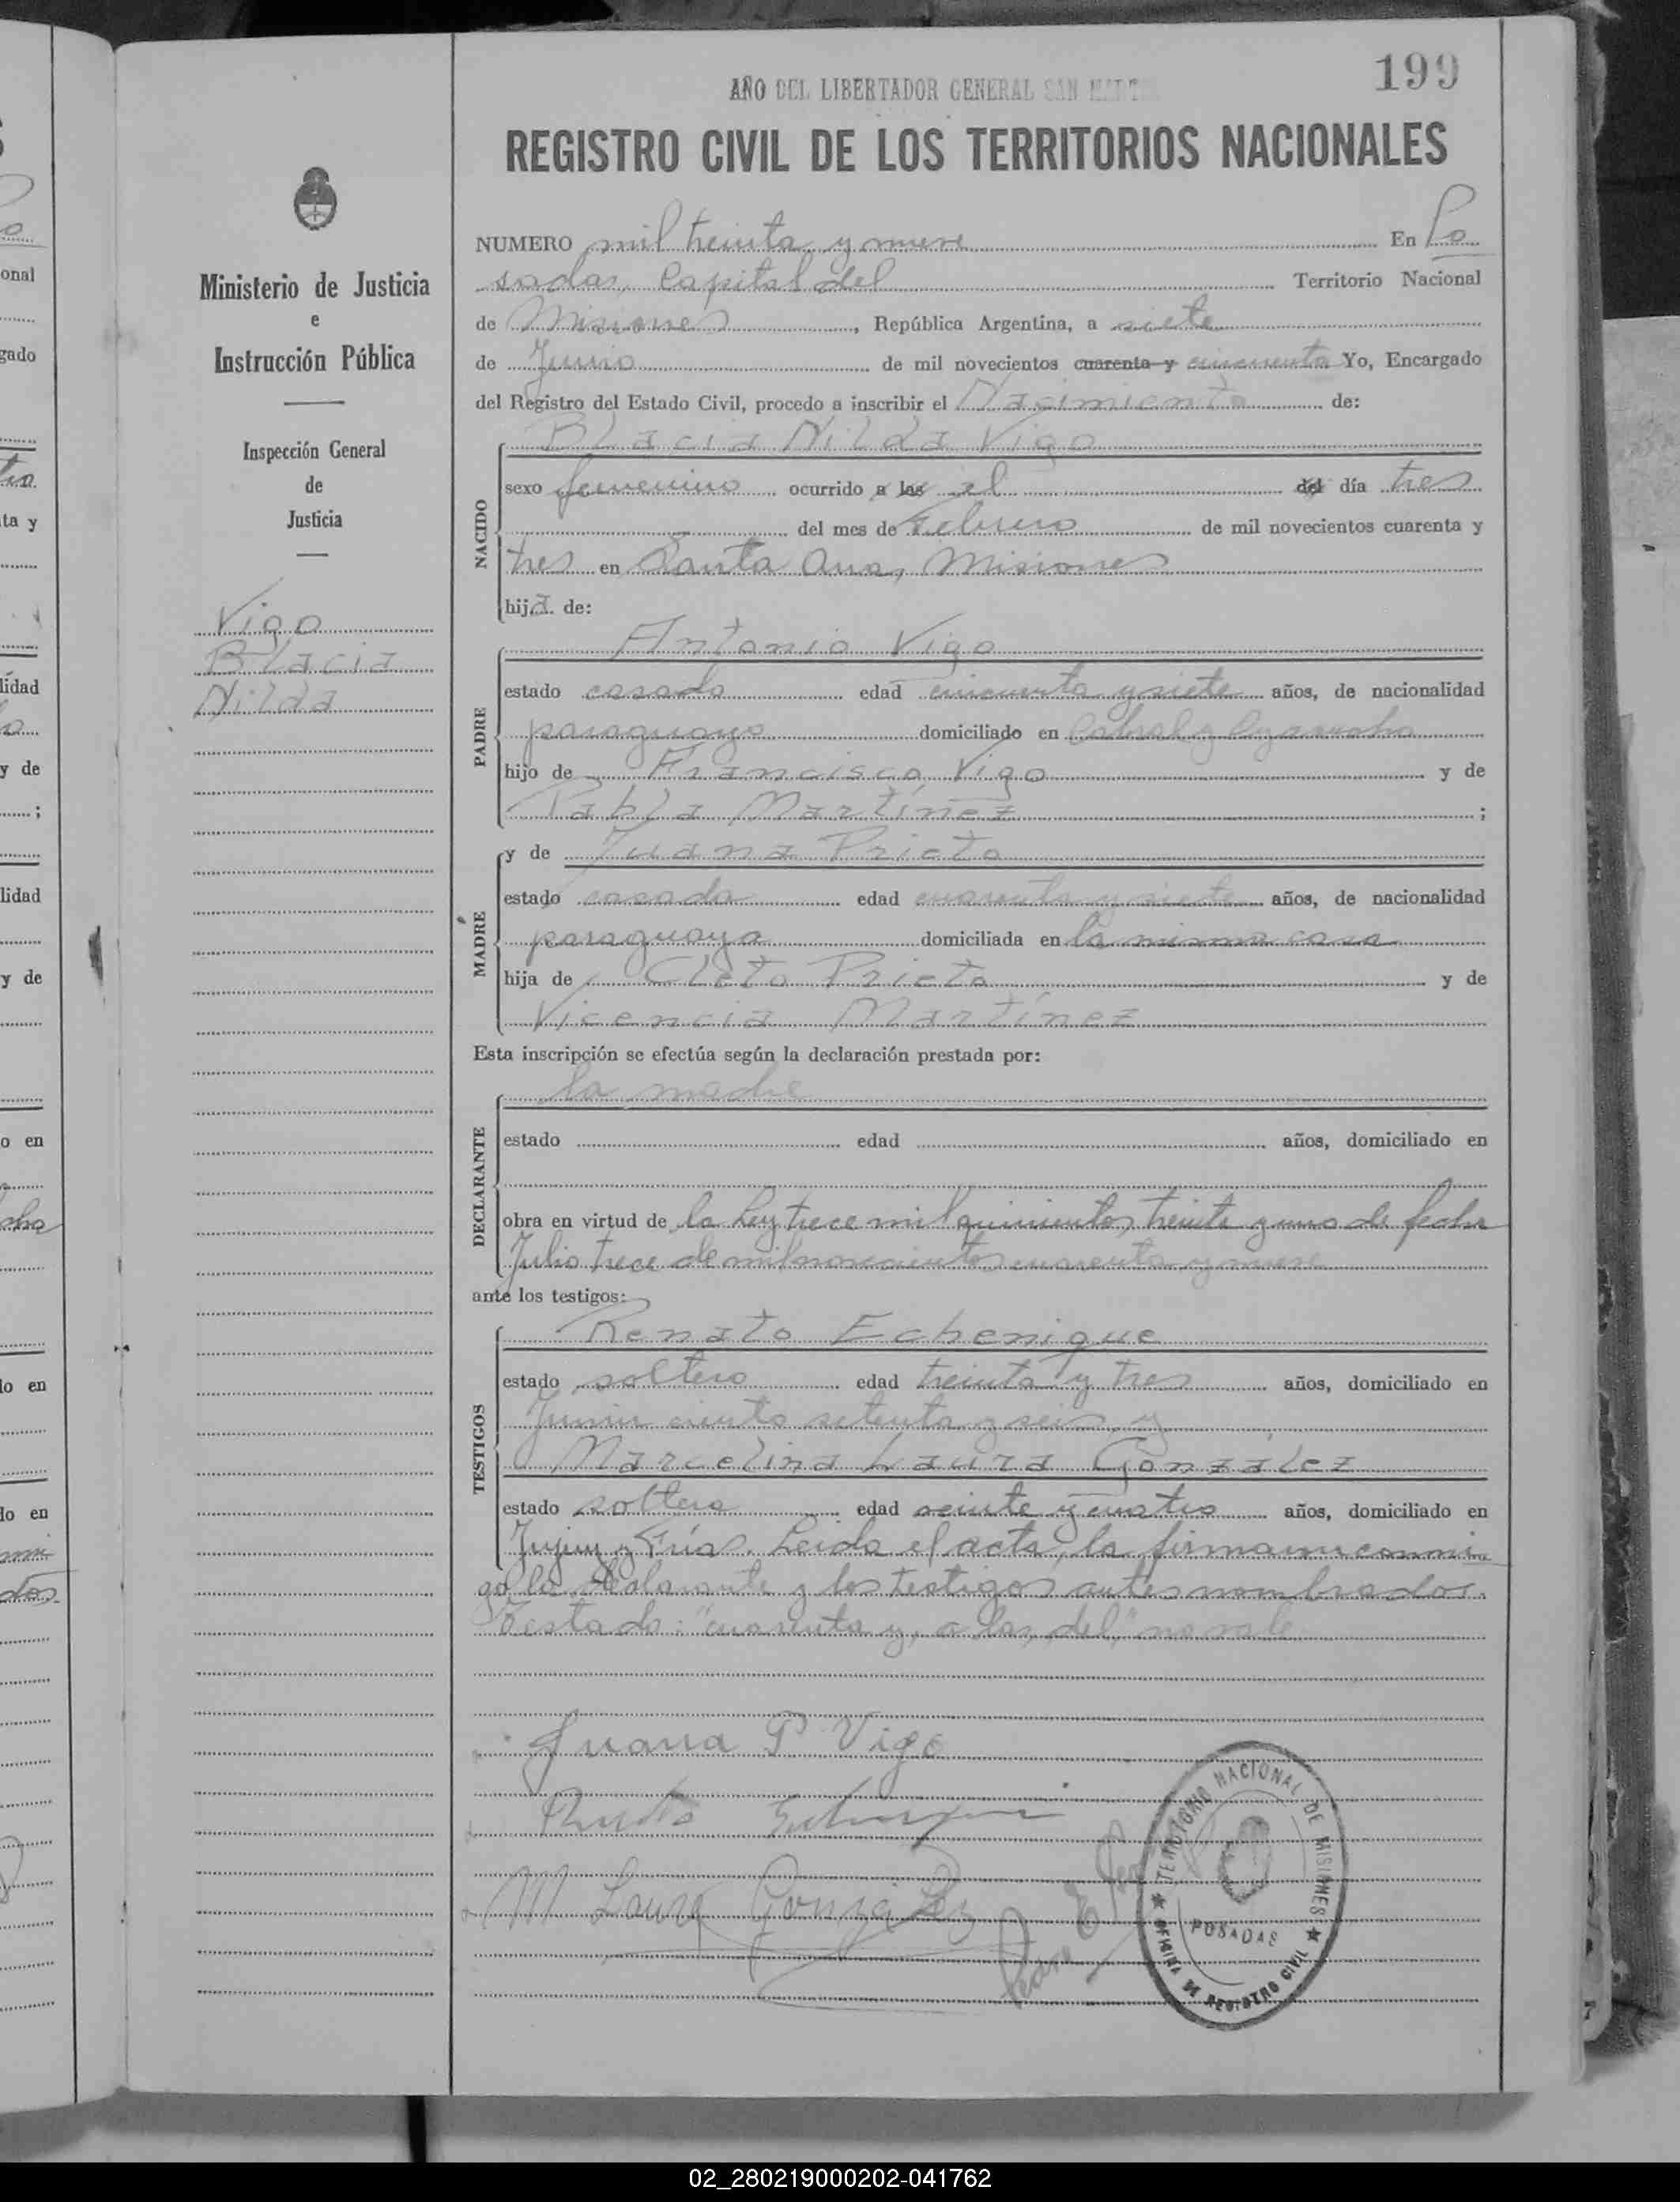 199
AÑO DEL LIBERTADOR GENERAL SAN MARTIN
REGISTRO CIVIL DE LOS TERRITORIOS NACIONALES
Ministerio de Justicia
e
Instrucción Pública
Inspección General
de
Justicia
Vigo
Blacia
Nilda
NUMERO mil treinta y nueve En Po
sadas, Capital del Territorio Nacional
de Misiones, República Argentina, a siete
de Junio de mil novecientos cuarenta y cincuenta Yo, Encargado
del Registro del Estado Civil, procedo a inscribir el Nacimiento de:
NACIDO
Blacia Nilda Vigo
sexo femenino ocurrido a las el del día tres
del mes de Febrero de mil novecientos cuarenta y
tres en Santa Ana, Misiones
hija de:
PADRE
Antonio Vigo
estado casado edad cincuenta y siete años, de nacionalidad
paraguayo domiciliado en Cabral y Ayacucho
hijo de Francisco Vigo y de
Pabla Martínez ;
MADRE
y de Juana Prieto
estado casada edad cuarenta y siete años, de nacionalidad
paraguaya domiciliada en la misma casa
hija de Cleto Prieto y de
Vicencia Martínez
Esta inscripción se efectúa según la declaración prestada por:
DECLARANTE
la madre
estado edad años, domiciliado en
obra en virtud de la Ley trece mil quinientos treinta y uno de fecha
Julio trece de mil novecientos cuarenta y nueve
ante los testigos:
TESTIGOS
Renato Echenique
estado soltero edad treinta y tres años, domiciliado en
Junin ciento setenta y seis y
Marcelina Laura González
estado soltera edad veinte y cuatro años, domiciliado en
Jujuy y Frías. Leida el acta, la firmaron conmi
go la declarante y los testigos antes nombrados.
Testado: "cuarenta y, a las, del," no vale
Juana P Vigo
M Laura González
TERRITORIO NACIONAL DE MISIONES
POSADAS
OFICINA DE REGISTRO CIVIL
02_280219000202-041762